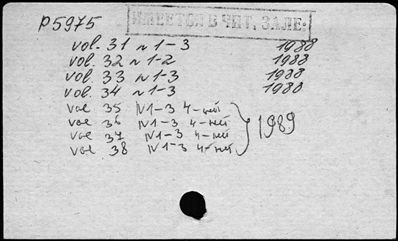 P5975
ИМЕЕТСЯ В ЧИТ. ЗАЛЕ:
vol. 31 N 1-3 1988
vol. 32 N 1-2 1988
vol. 33 N 1-3 1988
vol. 34 N 1-3 1988
vol 35 N1-3 4-ней
vol 36 N1-3 4-ней
vol 37 N1-3 4-ней
vol 38 N1-3 4-ней
1989